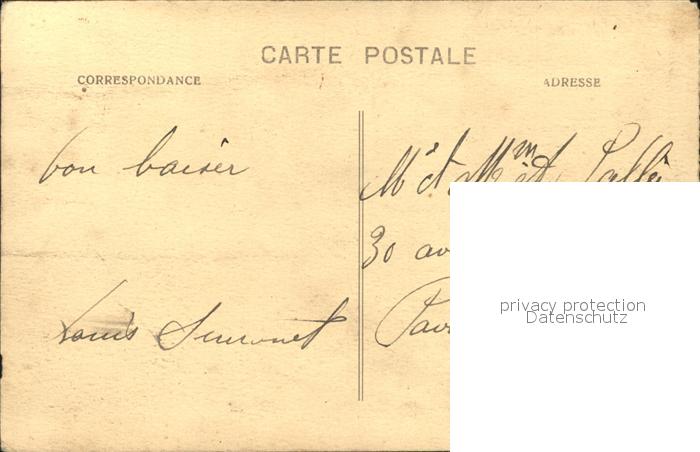 CARTE POSTALE
CORRESPONDANCE
ADRESSE
bon baiser
Louis Simonet
Mr et Mme
30 av
privacy protection
Datenschutz